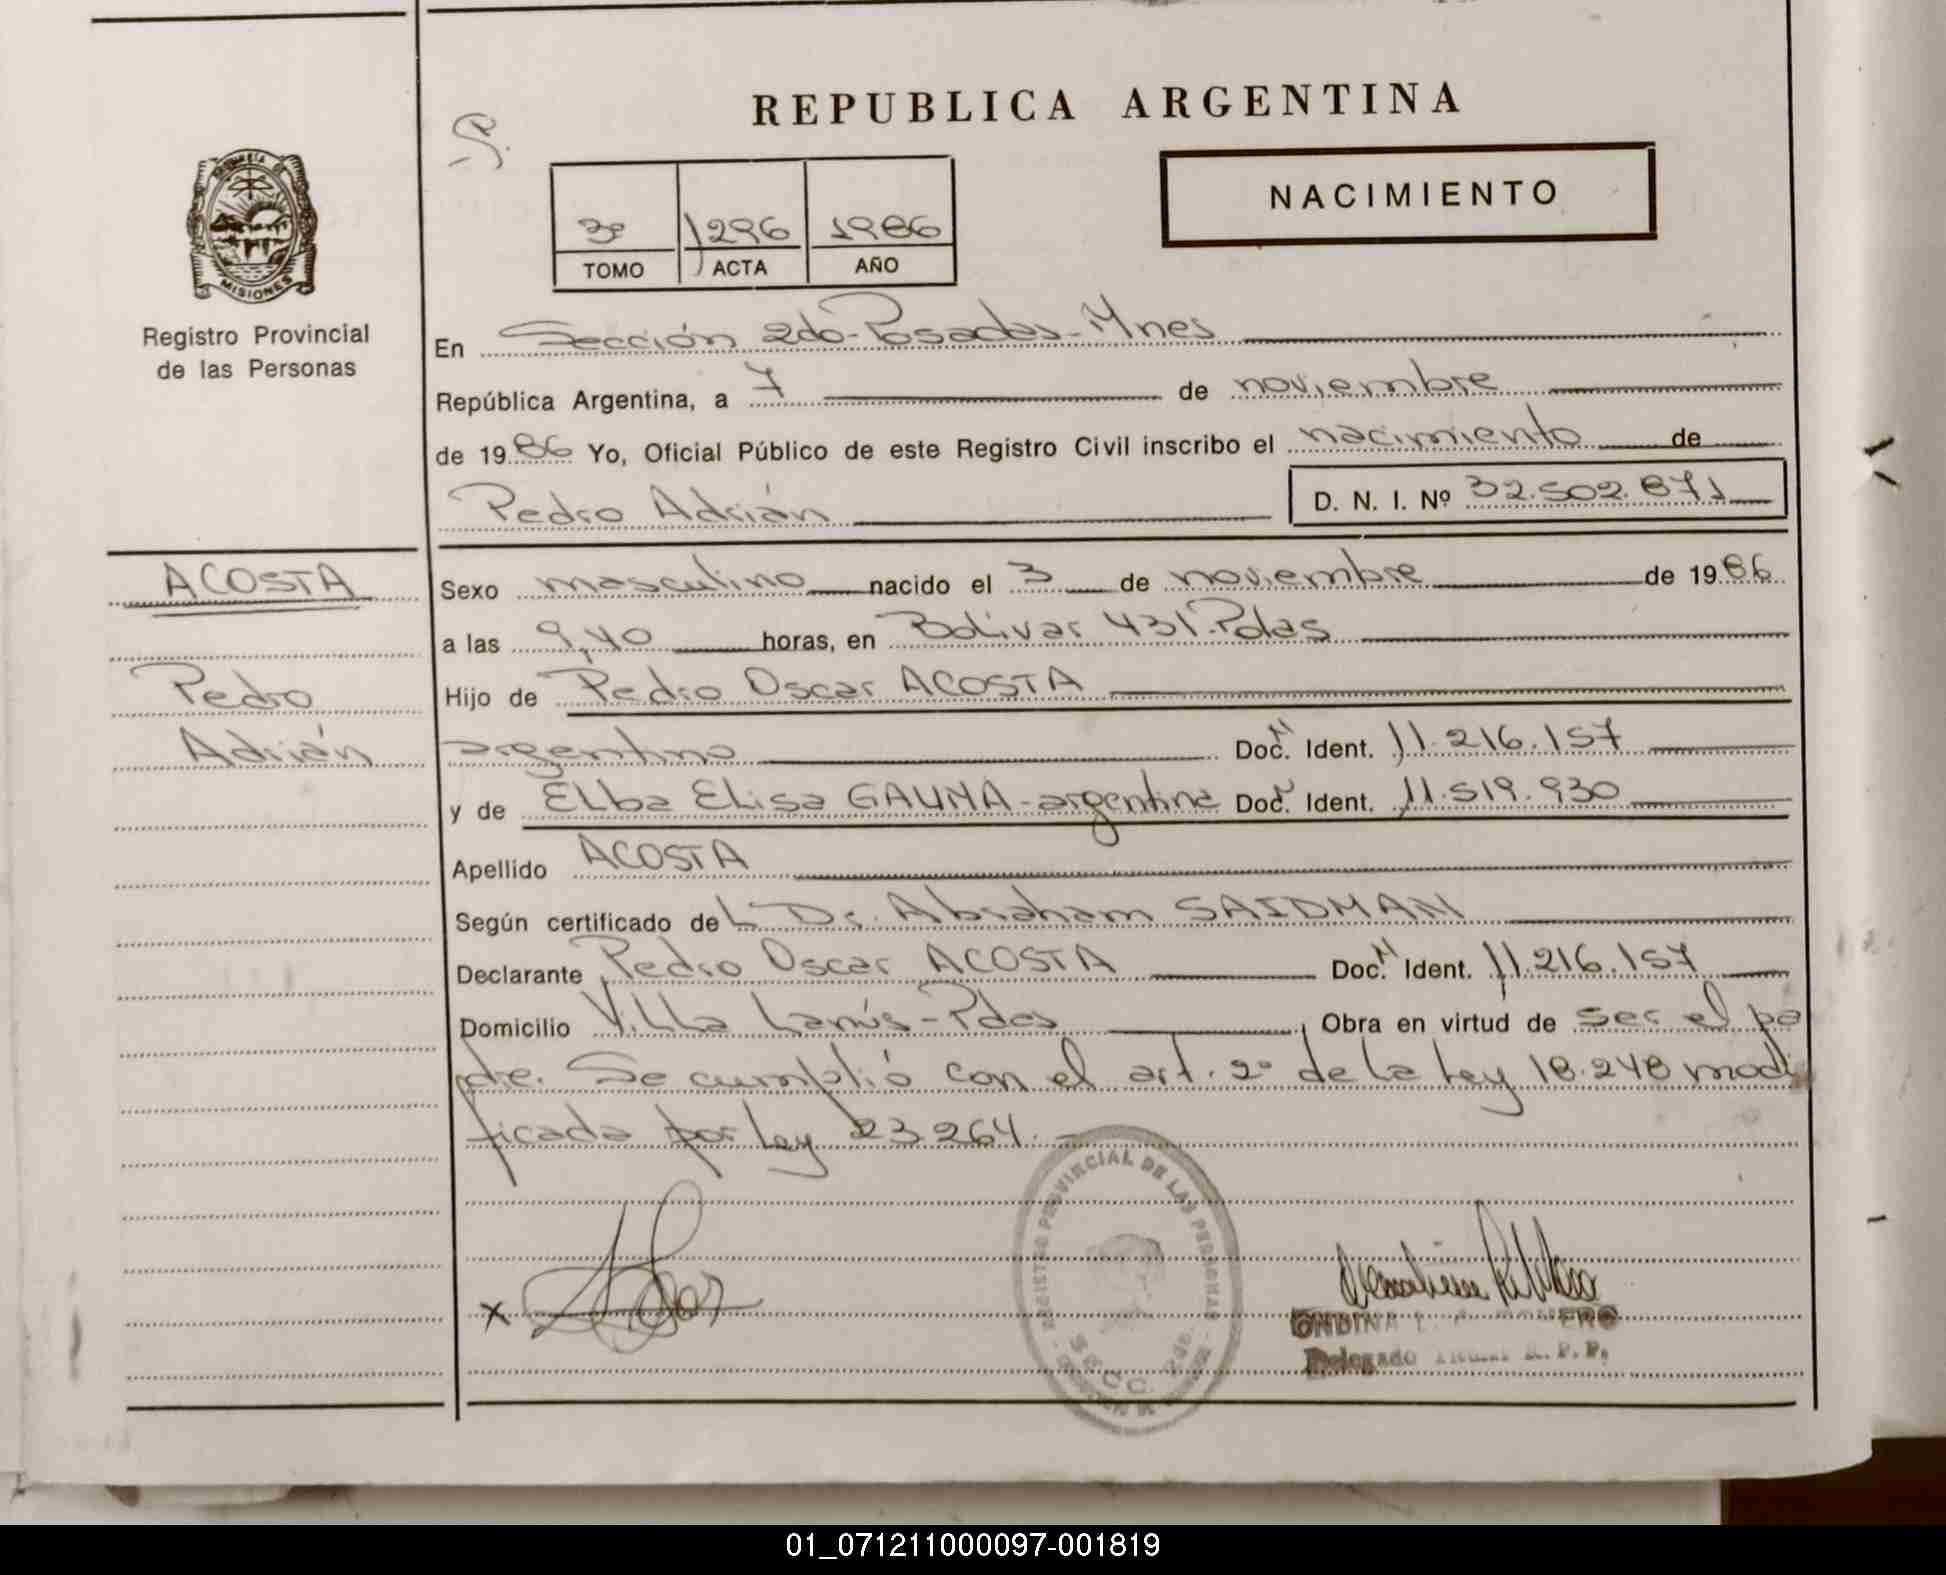 REPUBLICA ARGENTINA
NACIMIENTO
3º 1296 1986
TOMO ACTA AÑO
MISIONES
Registro Provincial
de las Personas
En Sección 2do-Posadas-Mnes
República Argentina, a 7 de noviembre
de 1986 Yo, Oficial Público de este Registro Civil inscribo el nacimiento de
Pedro Adrián D. N. I. Nº 32.502.871
ACOSTA
Pedro
Adrián
Sexo masculino nacido el 3 de noviembre de 1986
a las 9,40 horas, en Bolivar 431.Pdas
Hijo de Pedro Oscar ACOSTA
argentino Doc. Ident. 11.216.157
y de Elba Elisa GAUNA-argentina Doc. Ident. 11.519.930
Apellido ACOSTA
Según certificado del Dr. Abraham SAIDMAN
Declarante Pedro Oscar ACOSTA Doc. Ident. 11.216.157
Domicilio Villa Lanús-Pdas, Obra en virtud de ser el pa
dre. Se cumplió con el art. 2º de la Ley 18.248 modi
ficada por Ley 23264.-
REGISTRO PROVINCIAL DE LAS PERSONAS
SECC. 2da.
X
ONDINA ROMERO
Delegado Titular R.P.P.
01_071211000097-001819